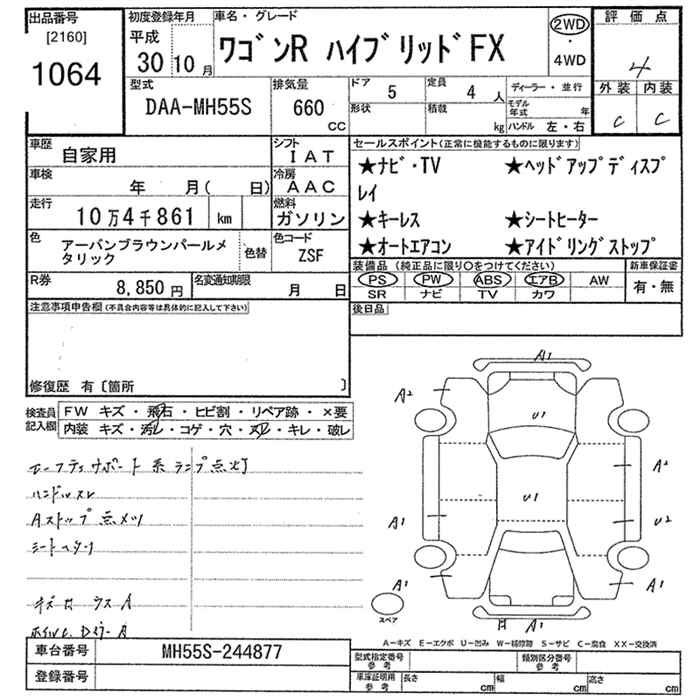 出品番号
[2160]
1064
初度登録年月
平成
30 10月
車名・グレード
ワゴンR ハイブリッドFX
2WD
・
4WD
評価点
4
外装 内装
C C
型式
DAA-MH55S
排気量
660
CC
ドア
5
定員
4 人
形状
積載
kg
ディーラー・並行
モデル年式 年
ハンドル 左・右
車歴
自家用
シフト
IAT
車検
年 月( 日)
冷房
AAC
走行
10万4千861 km
燃料
ガソリン
色
アーバンブラウンパールメタリック
色替
色コード
ZSF
R券
8,850円
名変通知期限
月 日
セールスポイント(正常に機能するものに限ります)
★ナビ・TV ★ヘッドアップディスプ
レイ
★キーレス ★シートヒーター
★オートエアコン ★アイドリングストップ
装備品 (純正品に限り○をつけてください)
PS PW ABS エアB AW
SR ナビ TV カワ
新車保証書
有・無
後日品
注意事項申告欄(不具合内容等は具体的に記入して下さい)
修復歴 有〔箇所 〕
検査員
記入欄
FW キズ・飛石・ヒビ割・リペア跡・×要
内装 キズ・汚レ・コゲ・穴・スレ・キレ・破レ
セーフティサポート系ランプ点灯
ハンドルスレ
Aストップ点メツ
シートヘタリ
A1
A2
U1
A2
U1
A1
U2
A1
A1
A1
スペア
A-キズ E-エクボ U-凹み W-補修跡 S-サビ C-腐食 XX-交換済
車台番号
MH55S-244877
登録番号
型式指定番号
参考
類別区分番号
参考
車庫証明用
参考
長さ cm
幅 cm
高さ cm